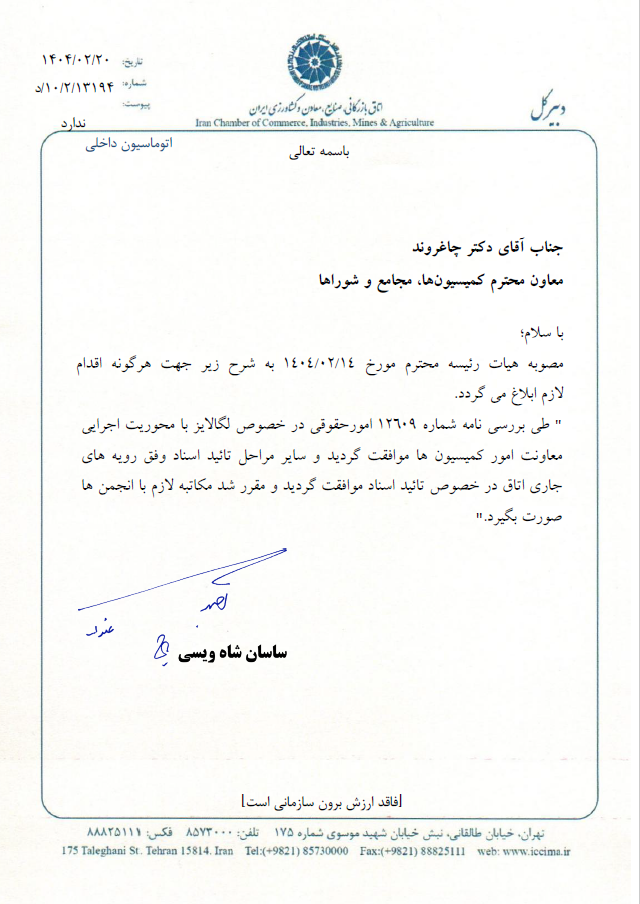 تاریخ: ۱۴۰۴/۰۲/۲۰
شماره: ۱۰/۲/۱۳۱۹۴/د
پیوست:
ندارد
اتوماسیون داخلی
اتاق بازرگانی، صنایع، معادن و کشاورزی ایران
Iran Chamber of Commerce, Industries, Mines & Agriculture
دبیرکل
باسمه تعالی
جناب آقای دکتر چاغروند
معاون محترم کمیسیون‌ها، مجامع و شوراها
با سلام؛
مصوبه هیات رئیسه محترم مورخ ۱۴۰۴/۰۲/۱۴ به شرح زیر جهت هرگونه اقدام
لازم ابلاغ می گردد.
" طی بررسی نامه شماره ۱۲۶۰۹ امورحقوقی در خصوص لگالایز با محوریت اجرایی
معاونت امور کمیسیون ها موافقت گردید و سایر مراحل تائید اسناد وفق رویه های
جاری اتاق در خصوص تائید اسناد موافقت گردید و مقرر شد مکاتبه لازم با انجمن ها
صورت بگیرد."
ساسان شاه ویسی
[فاقد ارزش برون سازمانی است]
تهران، خیابان طالقانی، نبش خیابان شهید موسوی شماره ۱۷۵ تلفن: ۸۵۷۳۰۰۰۰ فکس: ۸۸۸۲۵۱۱۱
175 Taleghani St. Tehran 15814. Iran Tel:(+9821) 85730000 Fax:(+9821) 88825111 web: www.iccima.ir